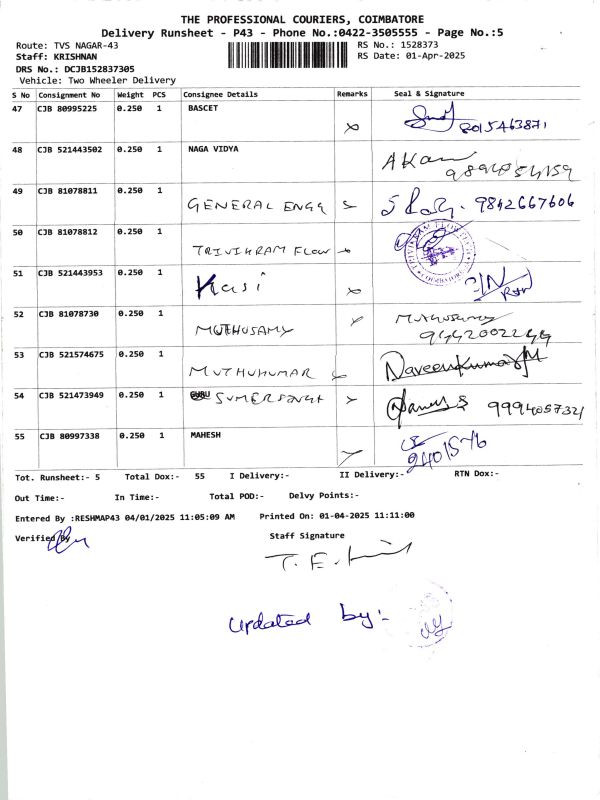 THE PROFESSIONAL COURIERS, COIMBATORE
Delivery Runsheet - P43 - Phone No.:0422-3505555 - Page No.:5
Route: TVS NAGAR-43 RS No.: 1528373
Staff: KRISHNAN RS Date: 01-Apr-2025
DRS No.: DCJB152837305
Vehicle: Two Wheeler Delivery
S No Consignment No Weight PCS Consignee Details Remarks Seal & Signature
47 CJB 80995225 0.250 1 BASCET
8015463871
48 CJB 521443502 0.250 1 NAGA VIDYA
49 CJB 81078811 0.250 1 GENERAL ENGG 9842667606
50 CJB 81078812 0.250 1 TRIVIKRAM FLOW
51 CJB 521443953 0.250 1 Kasi
52 CJB 81078730 0.250 1 MUTHUSAMY
9442002244
53 CJB 521574675 0.250 1 MUTHUKUMAR Naveenkumar M
54 CJB 521473949 0.250 1 SUMERSINGH
55 CJB 80997338 0.250 1 MAHESH
Tot. Runsheet:- 5 Total Dox:- 55 I Delivery:- II Delivery:- RTN Dox:-
Out Time:- In Time:- Total POD:- Delvy Points:-
Entered By :RESHMAP43 04/01/2025 11:05:09 AM Printed On: 01-04-2025 11:11:00
Verified By Staff Signature
Updated by:-